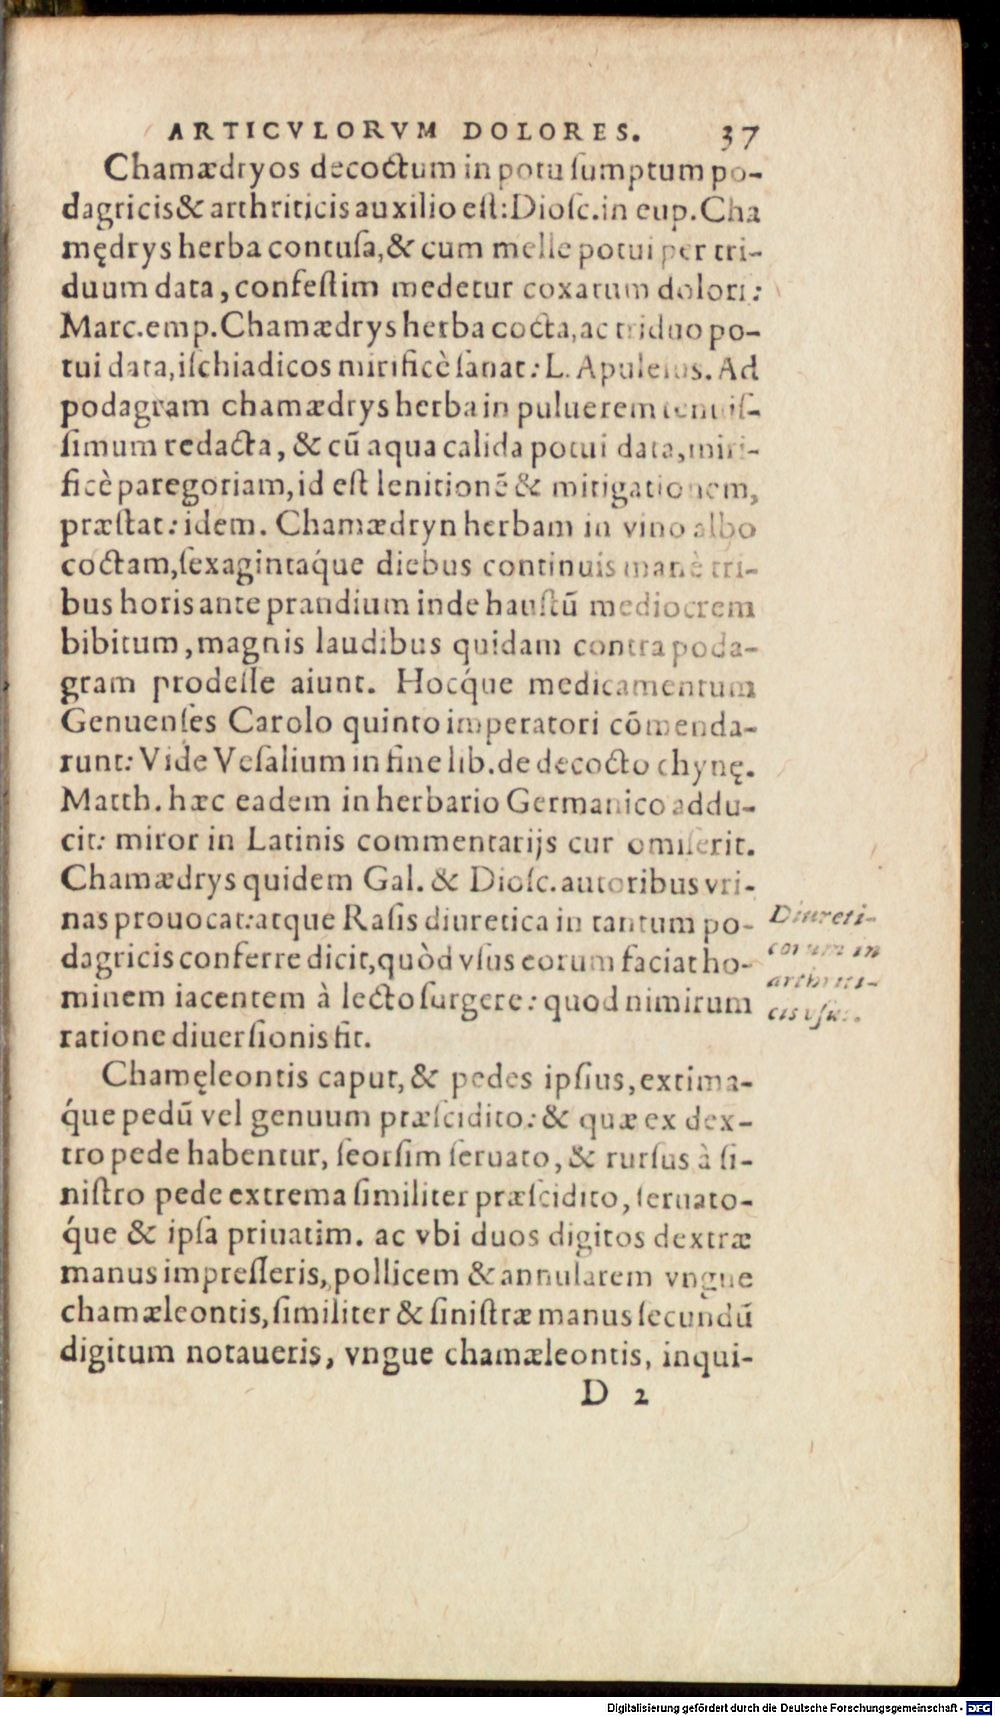 ARTICVLORVM DOLORES. 37
Chamædryos decoctum in potu ſumptum po-
dagricis & arthriticis auxilio eſt: Dioſc. in eup. Cha
mędrys herba contuſa, & cum melle potui per tri-
duum data, confeſtim medetur coxarum dolori:
Marc. emp. Chamædrys herba cocta, ac triduo po-
tui data, iſchiadicos mirificè ſanat: L. Apuleius. Ad
podagram chamædrys herba in puluerem tenuiſ-
ſimum redacta, & cū aqua calida potui data, miri-
ficè paregoriam, id eſt lenitionē & mitigationem,
præſtat: idem. Chamædryn herbam in vino albo
coctam, ſexagintaq́ue diebus continuis manè tri-
bus horis ante prandium inde hauſtū mediocrem
bibitum, magnis laudibus quidam contra poda-
gram prodeſſe aiunt. Hocq́ue medicamentum
Genuenſes Carolo quinto imperatori cōmenda-
runt: Vide Veſalium in fine lib. de decocto chynę.
Matth. hæc eadem in herbario Germanico addu-
cit: miror in Latinis commentarijs cur omiſerit.
Chamædrys quidem Gal. & Dioſc. autoribus vri-
nas prouocat: atque Raſis diuretica in tantum po-
dagricis conferre dicit, quòd vſus eorum faciat ho-
minem iacentem à lecto ſurgere: quod nimirum
ratione diuerſionis fit.
Diureti-
corum in
arthriti-
cis vſus.
Chamęleontis caput, & pedes ipſius, extima-
q́ue pedū vel genuum præſcidito: & quæ ex dex-
tro pede habentur, ſeorſim ſeruato, & rurſus à ſi-
niſtro pede extrema ſimiliter præſcidito, ſeruato-
q́ue & ipſa priuatim. ac vbi duos digitos dextræ
manus impreſſeris, pollicem & annularem vngue
chamæleontis, ſimiliter & ſiniſtræ manus ſecundū
digitum notaueris, vngue chamæleontis, inqui-
D 2
Digitalisierung gefördert durch die Deutsche Forschungsgemeinschaft - DFG